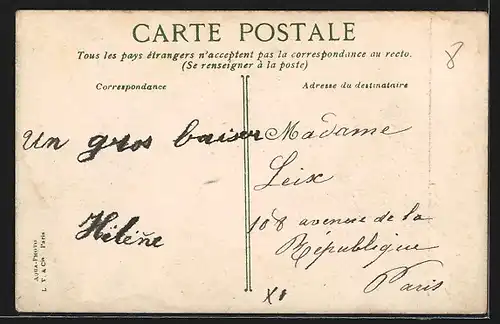 CARTE POSTALE
Tous les pays étrangers n'acceptent pas la correspondance au recto.
(Se renseigner à la poste)
Correspondance
Adresse du destinataire
8
Un gros baiser
Hélène
Madame
Leix
108 avenue de la
République
Paris
AQUA-PHOTO
L. V. & Cie Paris